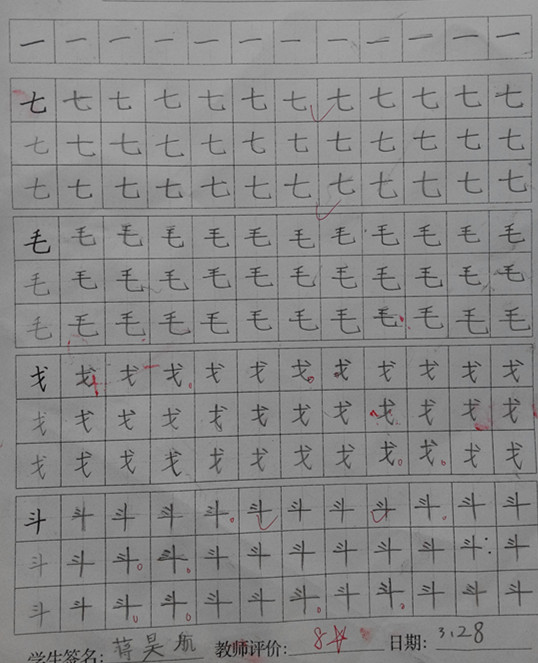 一 一 一 一 一 一 一 一 一 一 一 一
七 七 七 七 七 七 七 七 七 七 七 七
七 七 七 七 七 七 七 七 七 七 七 七
七 七 七 七 七 七 七 七 七 七 七 七
毛 毛 毛 毛 毛 毛 毛 毛 毛 毛 毛 毛
毛 毛 毛 毛 毛 毛 毛 毛 毛 毛 毛 毛
毛 毛 毛 毛 毛 毛 毛 毛 毛 毛 毛 毛
戈 戈 戈 戈 戈 戈 戈 戈 戈 戈 戈 戈
戈 戈 戈 戈 戈 戈 戈 戈 戈 戈 戈 戈
戈 戈 戈 戈 戈 戈 戈 戈 戈 戈 戈 戈
斗 斗 斗 斗 斗 斗 斗 斗 斗 斗 斗 斗
斗 斗 斗 斗 斗 斗 斗 斗 斗 斗 斗 斗
斗 斗 斗 斗 斗 斗 斗 斗 斗 斗 斗 斗
学生签名: 蒋昊航 教师评价: 8☆ 日期: 3.28